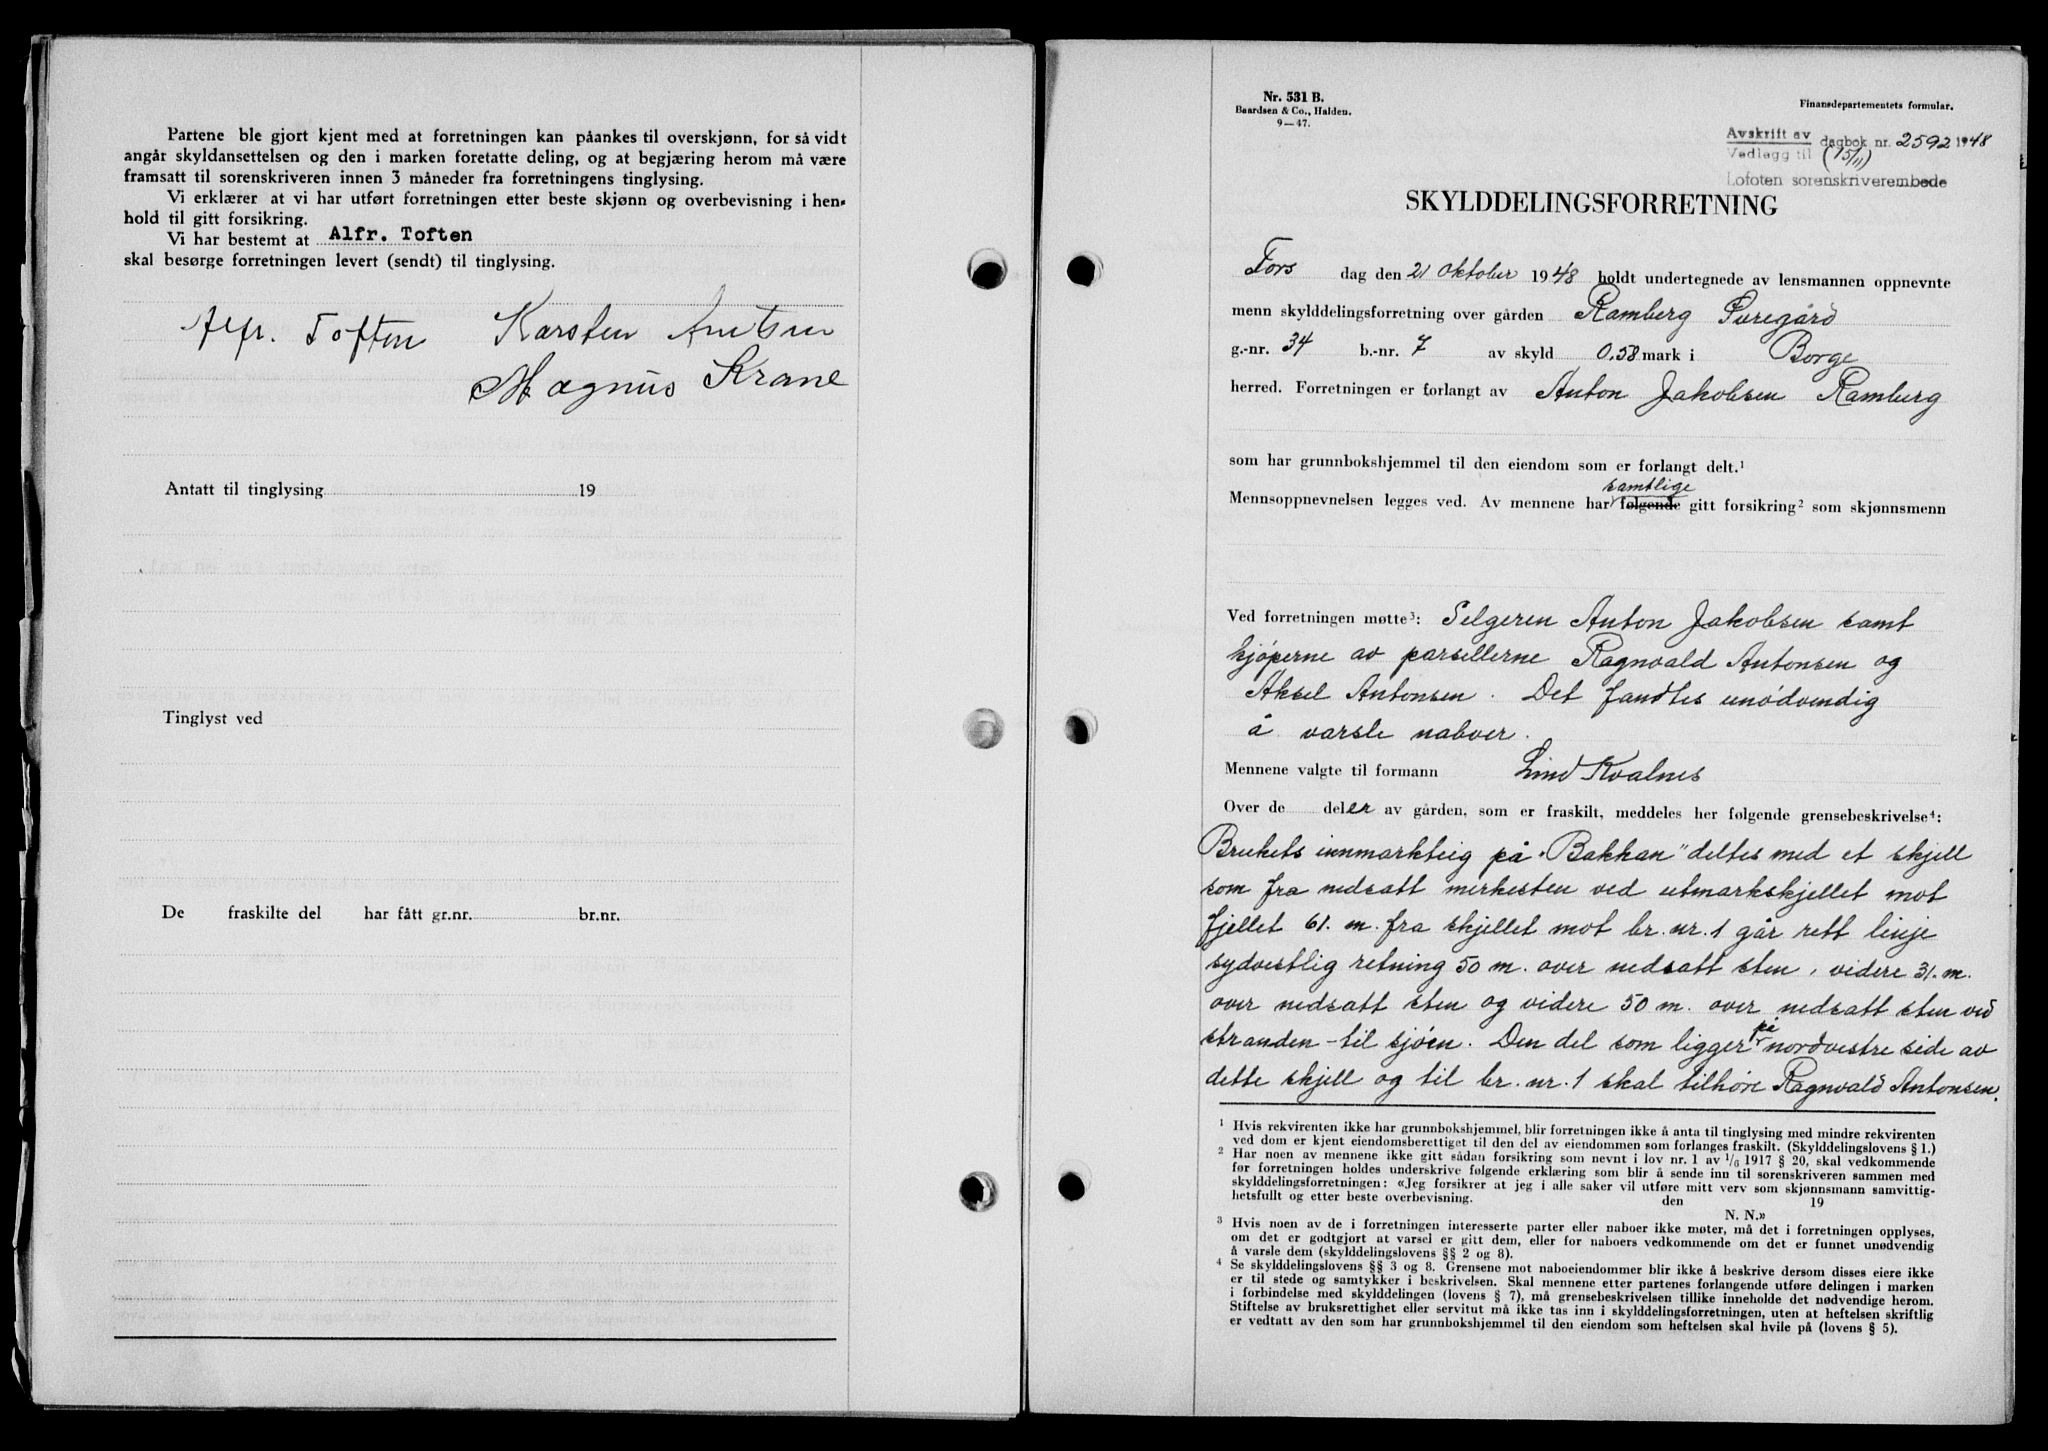 Partene ble gjort kjent med at forretningen kan påankes til overskjønn, for så vidt
angår skyldansettelsen og den i marken foretatte deling, og at begjæring herom må være
framsatt til sorenskriveren innen 3 måneder fra forretningens tinglysing.
Vi erklærer at vi har utført forretningen etter beste skjønn og overbevisning i hen-
hold til gitt forsikring.
Vi har bestemt at Alfr. Toften
skal besørge forretningen levert (sendt) til tinglysing.
Alfr. Toften Karsten Arntsen
Magnus Krane
Antatt til tinglysing 19
Tinglyst ved
De fraskilte del har fått gr.nr. br.nr.
Nr. 531 B.
Baardsen & Co., Halden.
9—47.
Finansdepartementets formular.
Avskrift av
Vedlegg til dagbok nr. 2592 1948
(15/11)
Lofoten sorenskriverembede
SKYLDDELINGSFORRETNING
Tors dag den 21 oktober 1948 holdt undertegnede av lensmannen oppnevnte
menn skylddelingsforretning over gården Ramberg Søregård
g.-nr. 34 b.-nr. 7 av skyld 0.58 mark i Borge
herred. Forretningen er forlangt av Anton Jakobsen Ramberg
som har grunnbokshjemmel til den eiendom som er forlangt delt.¹
samtlige
Mennsoppnevnelsen legges ved. Av mennene har følgende gitt forsikring² som skjønnsmenn
Ved forretningen møtte³: Selgeren Anton Jakobsen samt
kjøperne av parsellerne Ragnvald Antonsen og
Aksel Antonsen. Det fandtes unødvendig
å varsle naboer.
Mennene valgte til formann Lind Kvalnes
Over de deler av gården, som er fraskilt, meddeles her følgende grensebeskrivelse⁴:
Brukets innmarkteig på "Bakkan" deltes med et skjell
som fra nedsatt merkesten ved utmarkskjellet mot
fjellet 61. m. fra skjellet mot br. nr. 1 går rett linje
sydvestlig retning 50 m. over nedsatt sten, videre 31. m.
over nedsatt sten og videre 50 m. over nedsatt sten ved
stranden - til sjøen. Den del som ligger på nordvestre side av
dette skjell og til br. nr. 1 skal tilhøre Ragnvald Antonsen.
¹ Hvis rekvirenten ikke har grunnbokshjemmel, blir forretningen ikke å anta til tinglysing med mindre rekvirenten
ved dom er kjent eiendomsberettiget til den del av eiendommen som forlanges fraskilt. (Skylddelingslovens § 1.)
² Har noen av mennene ikke gitt sådan forsikring som nevnt i lov nr. 1 av 1/6 1917 § 20, skal vedkommende
før forretningen holdes underskrive følgende erklæring som blir å sende inn til sorenskriveren sammen med
skylddelingsforretningen: «Jeg forsikrer at jeg i alle saker vil utføre mitt verv som skjønnsmann samvittig-
hetsfullt og etter beste overbevisning. den 19
N. N.»
³ Hvis noen av de i forretningen interesserte parter eller naboer ikke møter, må det i forretningen opplyses,
om det er godtgjort at varsel er gitt dem, eller for naboers vedkommende om det er funnet unødvendig
å varsle dem (skylddelingslovens §§ 2 og 8).
⁴ Se skylddelingslovens §§ 3 og 8. Grensene mot naboeiendommer blir ikke å beskrive dersom disses eiere ikke
er til stede og samtykker i beskrivelsen. Skal mennene etter partenes forlangende utføre delingen i marken
i forbindelse med skylddelingen (lovens § 7), må grensebeskrivelsen tillike inneholde det nødvendige herom.
Stiftelse av bruksrettighet eller servitut må ikke tas inn i skylddelingsforretningen, uten at heftelsen skriftlig
er vedtatt av den som har grunnbokshjemmel til den eiendom som heftelsen skal hvile på (lovens § 5).